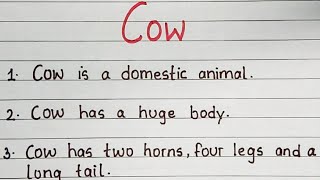 Cow
1. Cow is a domestic animal.
2. Cow has a huge body.
3. Cow has two horns, four legs and a
long tail.